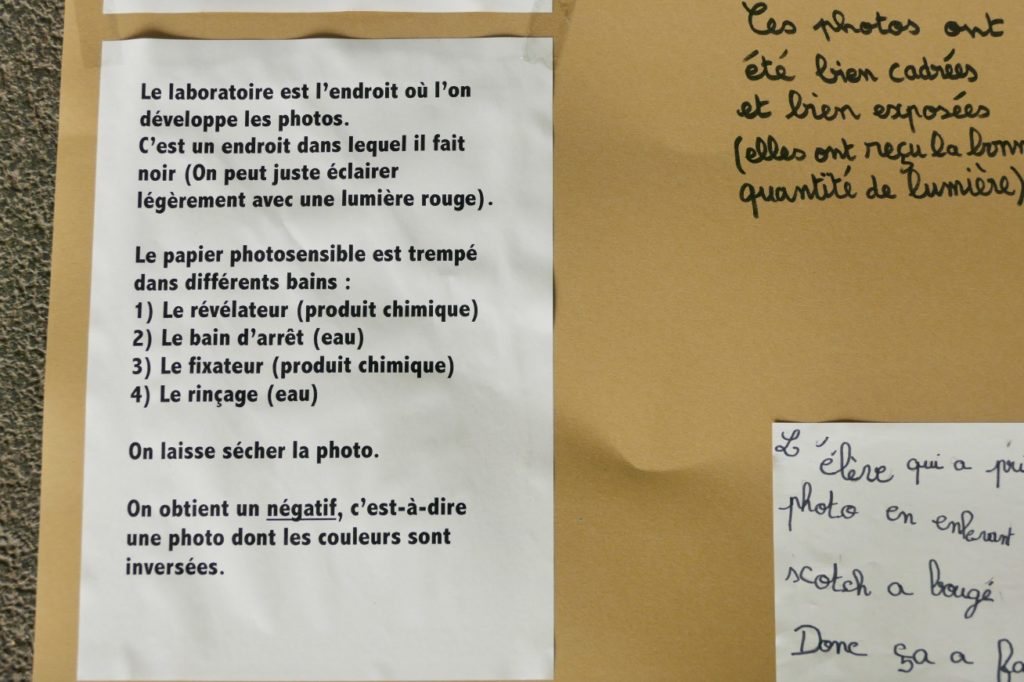 Le laboratoire est l'endroit où l'on
développe les photos.
C'est un endroit dans lequel il fait
noir (On peut juste éclairer
légèrement avec une lumière rouge).
Le papier photosensible est trempé
dans différents bains :
1) Le révélateur (produit chimique)
2) Le bain d'arrêt (eau)
3) Le fixateur (produit chimique)
4) Le rinçage (eau)
On laisse sécher la photo.
On obtient un négatif, c'est-à-dire
une photo dont les couleurs sont
inversées.
Ces photos ont
été bien cadrées
et bien exposées
(elles ont reçu la bonn
quantité de lumière)
L'élève qui a
photo en enlevant
scotch a bougé
Donc ça a